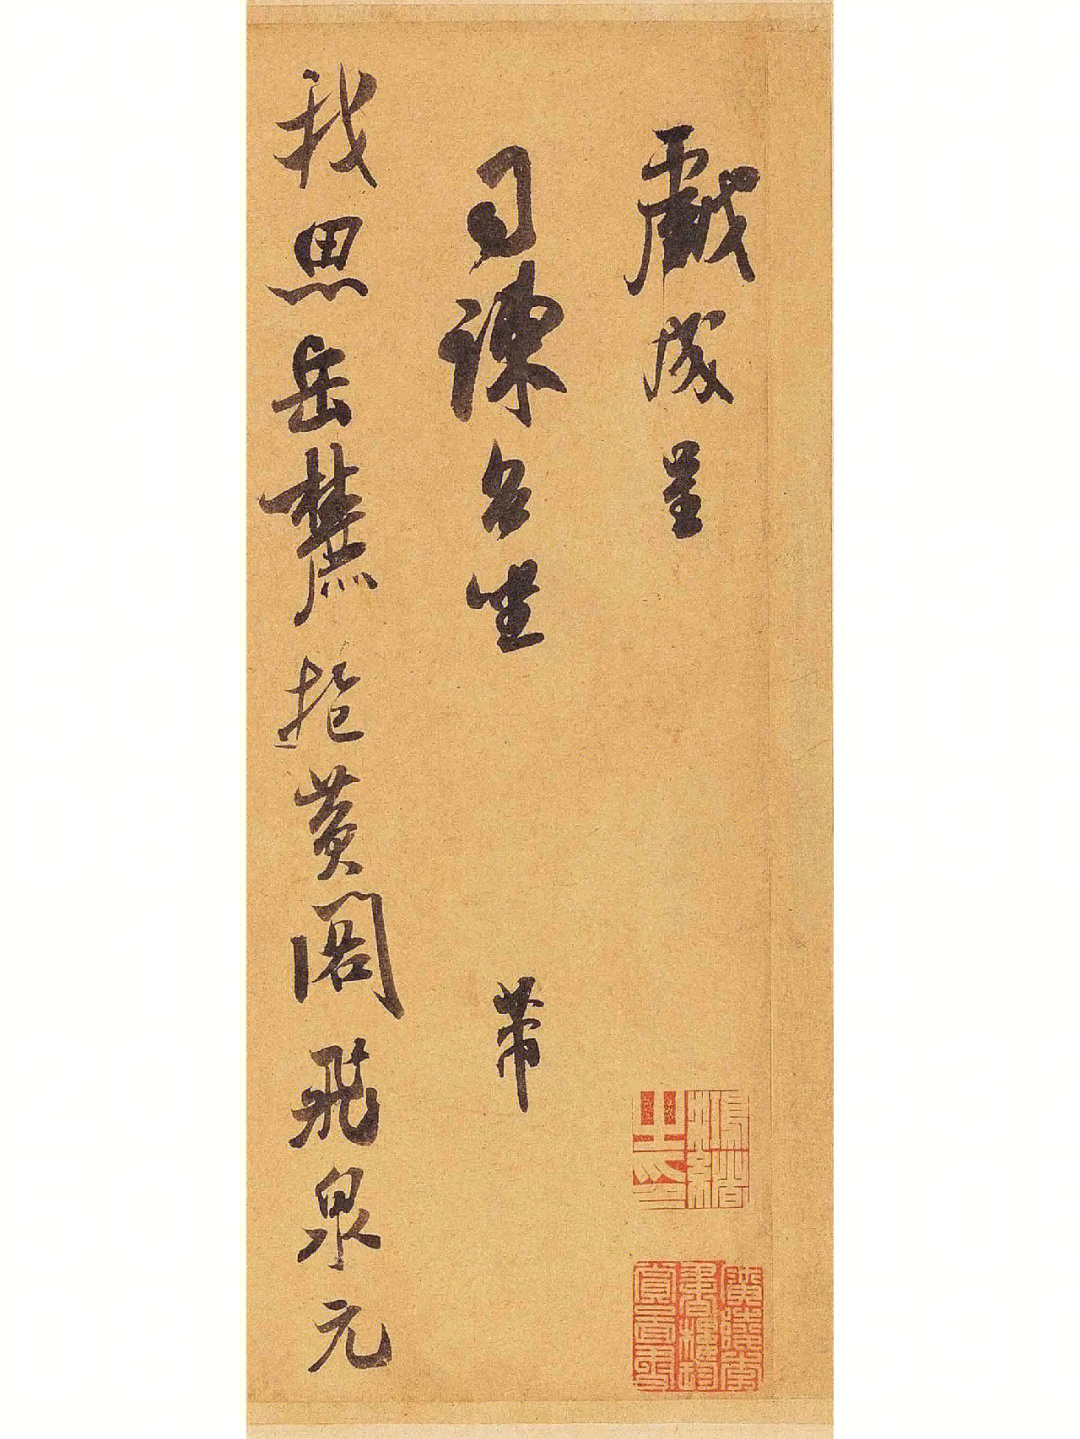 戲成呈
司諫台坐　芾
我思岳麓抱黄閣飛泉元